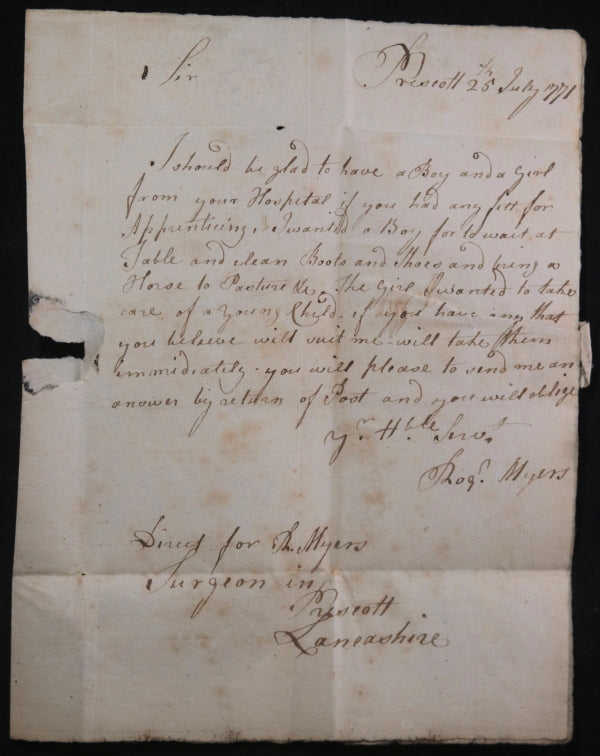 Sir Prescott 25 July 1771
I should be glad to have a Boy and a Girl
from your Hospital if you had any fitt for
Apprenticing, I wanted a Boy for to wait at
Table and clean Boots and Shoes and bring a
Horse to Pasture &c. The Girl I wanted to take
care of a young Child. if you have any that
you believe will suit me will take them
immidiately. you will please to send me an
answer by return of Post and you will oblige
yr. Hble Servt
Myers
Direct for Th. Myers
Surgeon in
Prescott
Lancashire